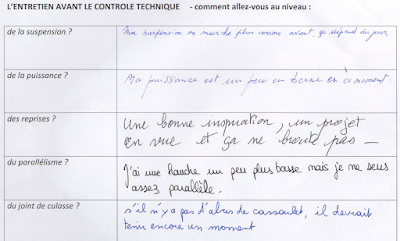 L'ENTRETIEN AVANT LE CONTROLE TECHNIQUE - comment allez-vous au niveau :
de la suspension ?
Ma suspension ne marche plus comme avant, ça dépend du jour
de la puissance ?
Ma puissance est un peu en berne en ce moment.
des reprises ?
Une bonne inspiration, un projet
en vue et ça ne broute pas —
du parallélisme ?
J'ai une hanche un peu plus basse mais je me sens
assez parallèle.
du joint de culasse ?
s'il n'y a pas d'abus de cassoulet, il devrait
tenir encore un moment